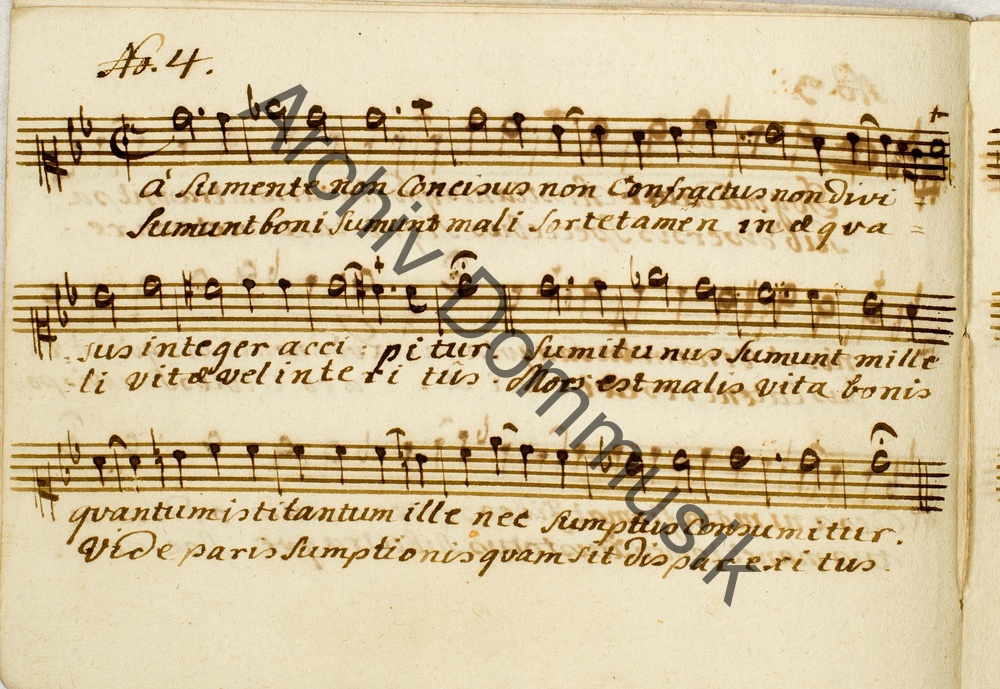 No. 4.
A' Sumente non Concisus non Confractus non divi =
Sumunt boni Sumunt mali Sorte tamen in æqua =
sus integer acci : pitur. Sumit unus Sumunt mille
li vitæ vel inte ri tus. Mors est malis vita bonis
quantum isti tantum ille nec Sumptus Consumitur.
Vide paris Sumptionis quam sit dispar exi tus.
Archiv Dommusik